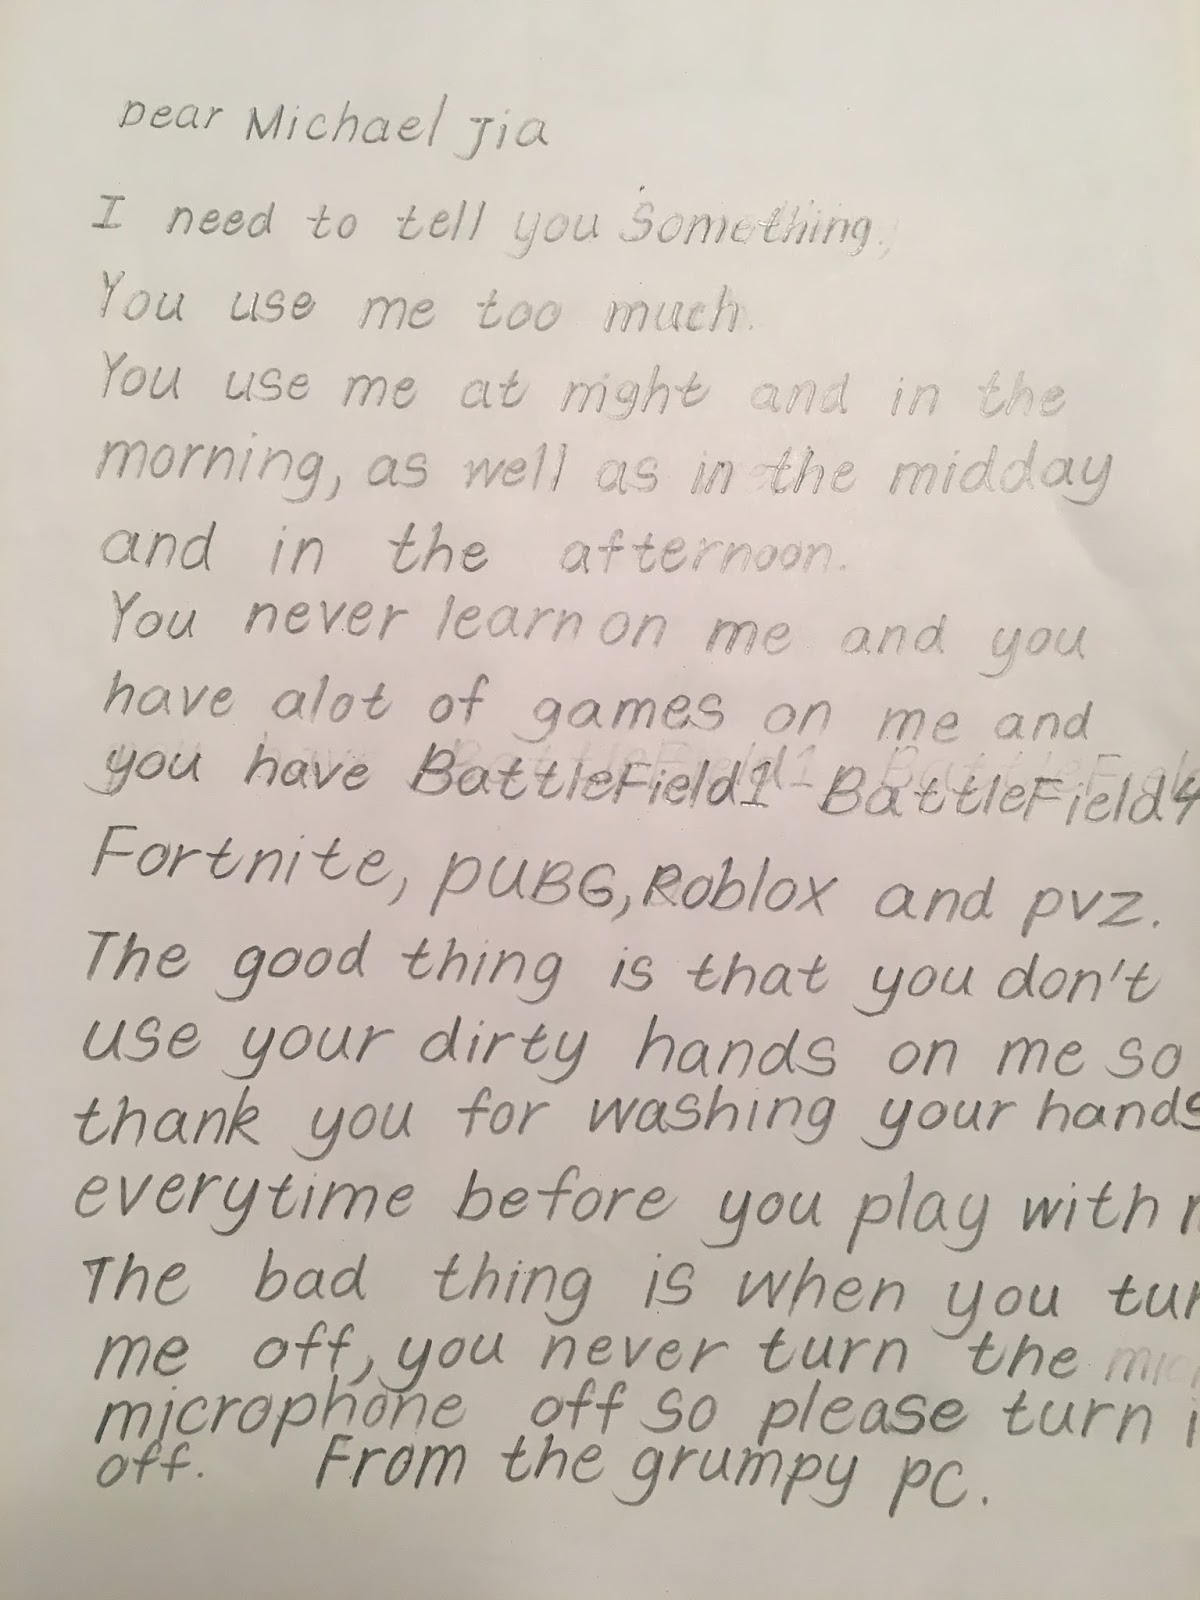 Dear Michael Jia
I need to tell you Something,
You use me too much.
You use me at night and in the
morning, as well as in the midday
and in the afternoon.
You never learn on me and you
have alot of games on me and
you have BattleField1 BattleField4
Fortnite, PUBG, Roblox and pvz.
The good thing is that you don't
use your dirty hands on me so
thank you for washing your hands
everytime before you play with
The bad thing is when you
me off, you never turn the
microphone off so please turn
off. From the grumpy PC.